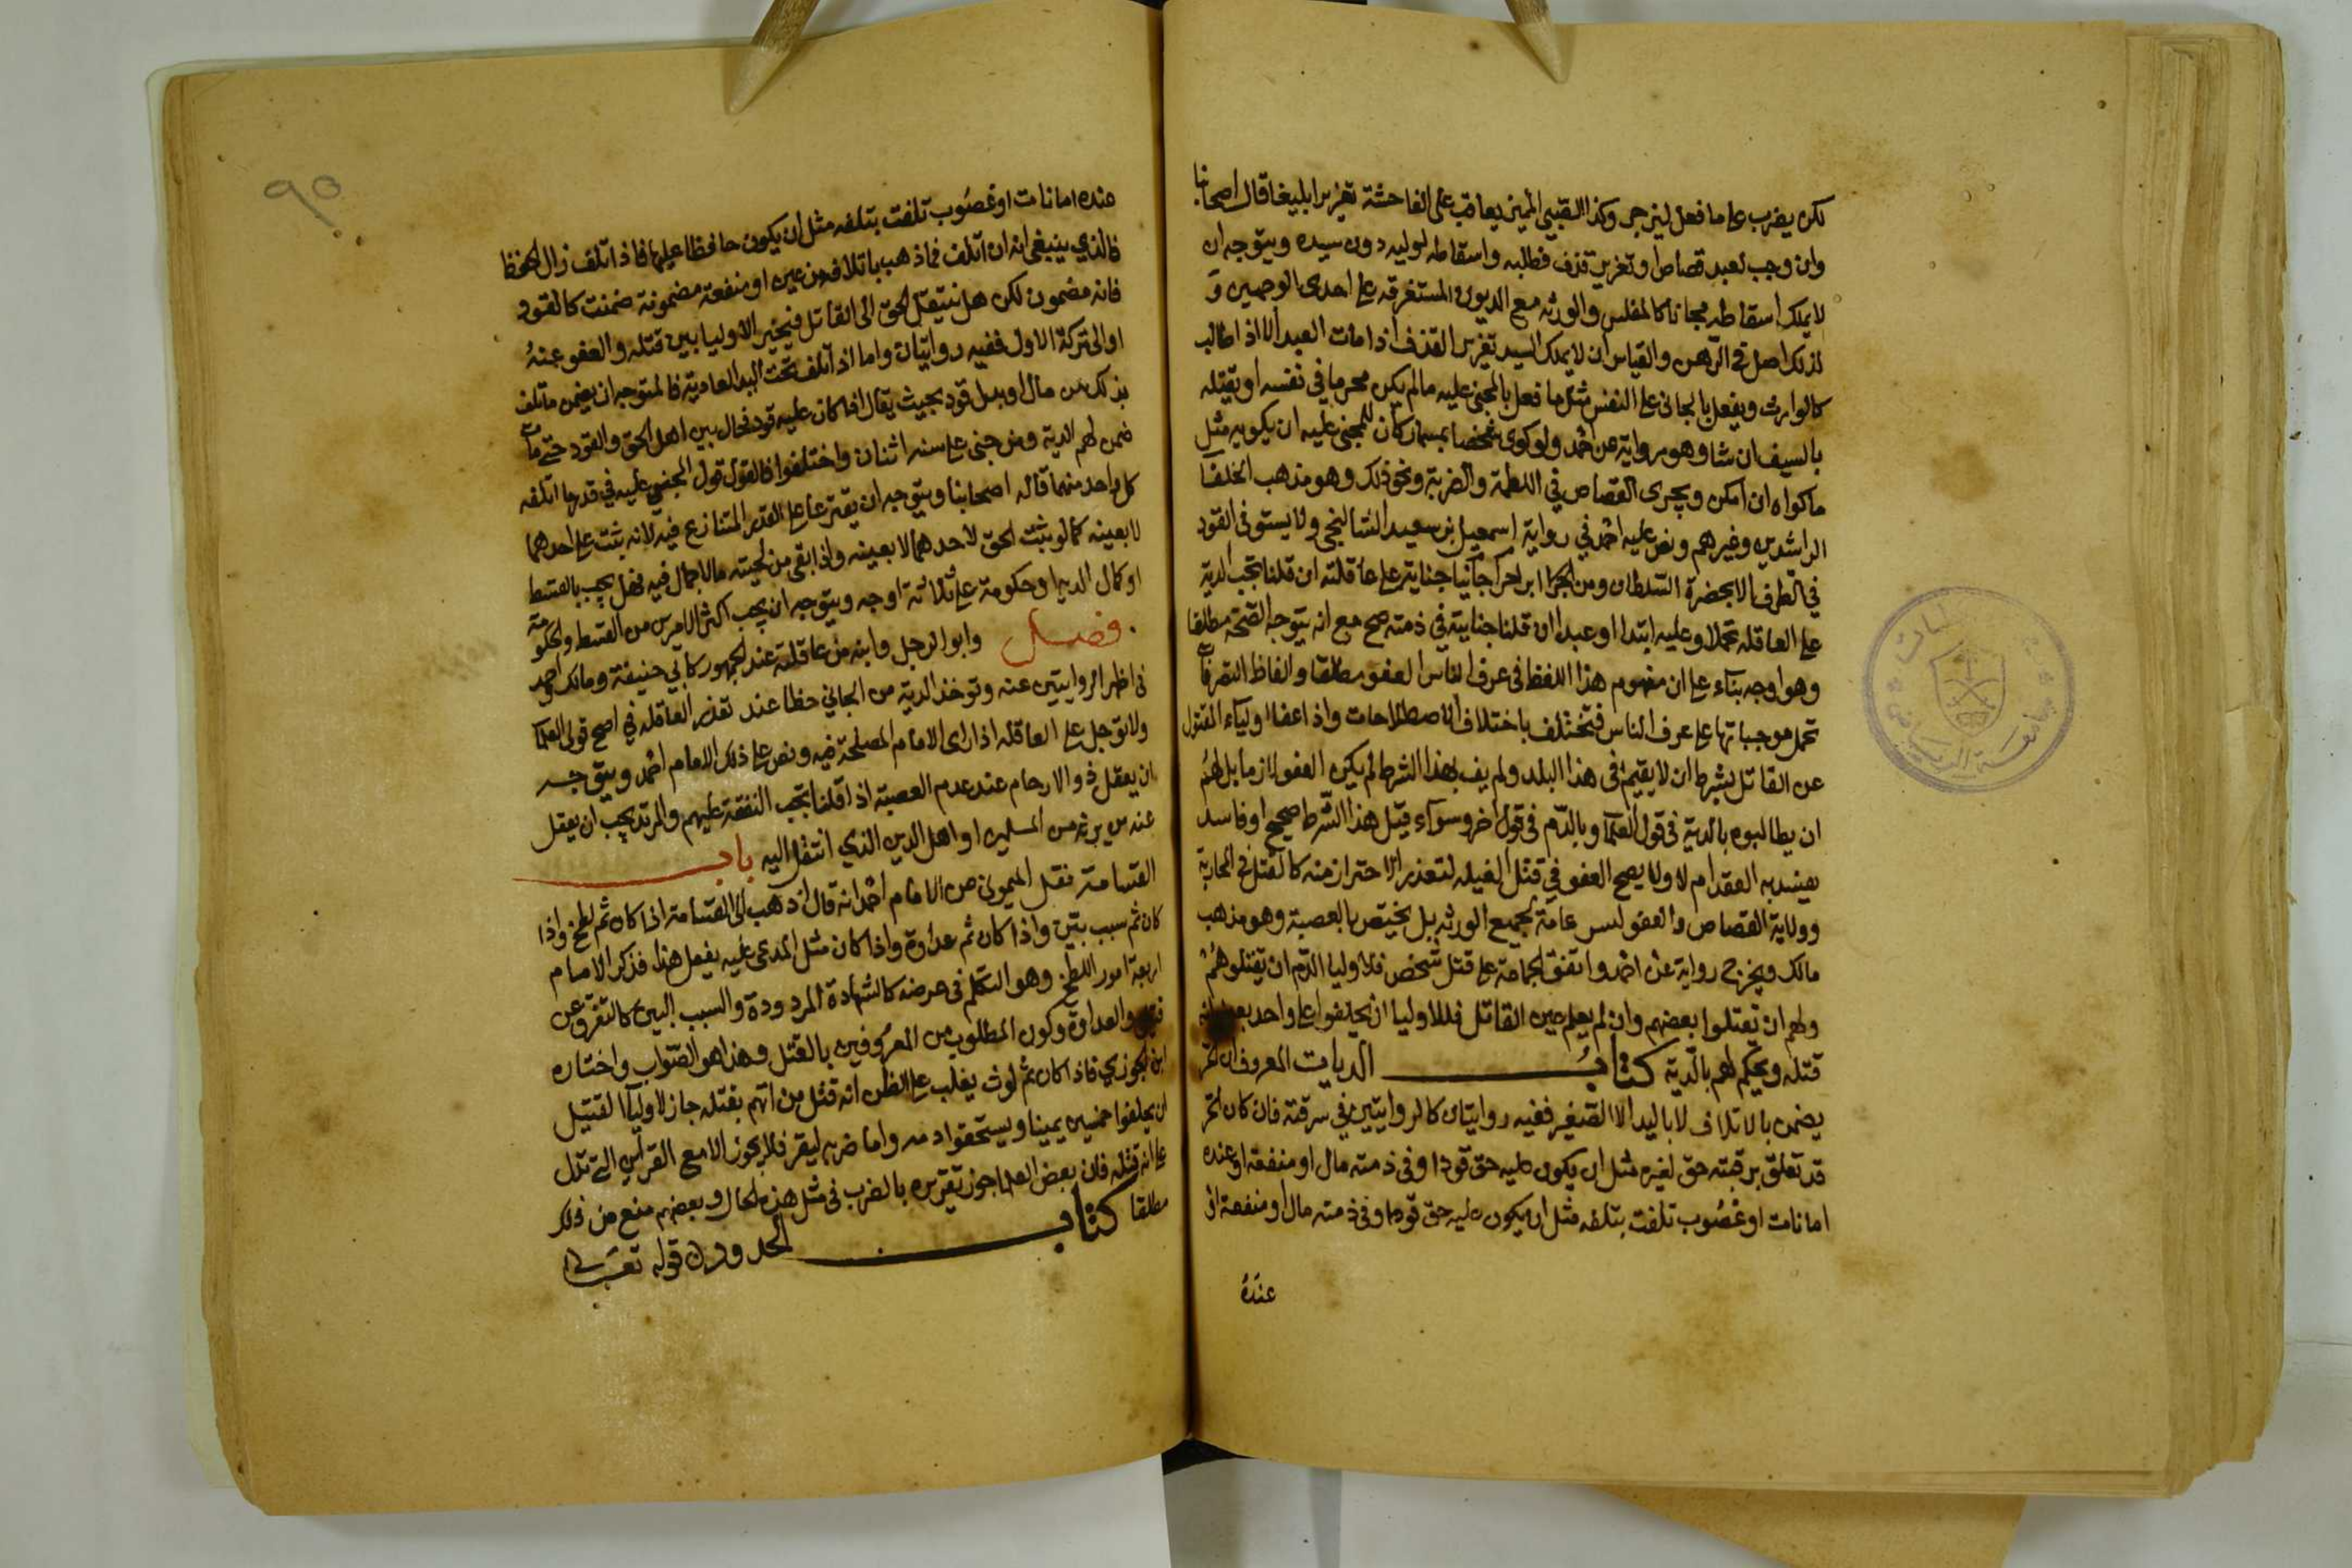 لكن يضرب على ما فعل لينزجر وكذا الصبي المميز يعاقب على الفاحشة تعزيرا بليغا قال اصحابنا
وان وجب لعبد قصاص او تعزير قذف فطلبه واسقاطه لوليه دون سيده ويتوجه ان
لا يملك اسقاطه مجانا كالمفلس والورثه مع الديون المستغرقه على احدى الوجهين و
لذلك اصل في الرهن والقياس ان لا يملك السيد تعزير القذف اذا مات العبد الا اذا طالب
كالوارث ويفعل بالجاني على النفس مثل ما فعل بالمجني عليه مالم يكن محرما في نفسه او يقتله
بالسيف ان شا وهو رواية عن احمد ولو كوى شخصا بمسمار كان للمجني عليه ان يكويه مثل
ما كواه ان امكن ويجرى القصاص في اللطمة والضربة ونحو ذلك وهو مذهب الخلفا
الراشدين وغيرهم ونص عليه احمد في رواية اسمعيل بن سعيد الشالنجي ولا يستوفى القود
في الطرف الا بحضرة السلطان ومن ابرا جانيا حرا جنايته على عاقلته ان قلنا تجب الدية
على العاقله تحملا وعليه ابتدا او عبدا ان قلنا جنايته في ذمته صح مع انه يتوجه الصحة مطلقا
وهو اوجه بناء على ان مفهوم هذا اللفظ في عرف الناس العفو مطلقا والفاظ التصرفات
تحمل موجباتها على عرف الناس فتختلف باختلاف الاصطلاحات واذا عفا اولياء المقتول
عن القاتل بشرط ان لا يقيم في هذا البلد ولم يف بهذا الشرط لم يكن العفو لازما بل لهم
ان يطالبوه بالدية في قول العلما وبالدم في قول اخر وسواء قيل هذا الشرط صحيح او فاسد
يفسد به العقد ام لا ولا يصح العفو في قتل الغيله لتعذر الاحتراز منه كالقتل في المحاربة
وولاية القصاص والعفو ليس عامة لجميع الورثه بل يختص بالعصبة وهو مذهب
مالك ويخرج رواية عن احمد واتفق الجماعة على قتل شخص فلاوليا الدم ان يقتلوهم
ولهم ان يقتلوا بعضهم وان لم يعلم عين القاتل فللاوليا ان يحلفوا على واحد بعينه انه
قتله ويحكم لهم بالدية كتاب الديات المعروف ان الحر
يضمن بالاتلاف لا باليد الا الصغير ففيه روايتان كالروايتين في سرقته فان كان الحر
قد تعلق برقبته حق لغيره مثل ان يكون عليه حق قود او في ذمته مال او منفعة او عنده
امانات او غصوب تلفت بتلفه مثل ان يكون عليه حق قود او في ذمته مال او منفعة او
عنده
٩٥
عنده امانات او غصوب تلفت بتلفه مثل ان يكون حافظا عليها فاذا تلف زال الحفظ
فالذي ينبغي انه ان اتلف فما ذهب باتلافه من عين او منفعة مضمونة ضمنت كالقود
فانه مضمون لكن هل ينتقل الحق الى القاتل فيخير الاوليا بين قتله والعفو عنه
او الى تركة الاول ففيه روايتان واما اذا تلف تحت اليد العادية فالمتوجه ان يضمن ما تلف
بذلك من مال او بدل قود بحيث يقال اذا كان عليه قود فحال بين اهل الحق والقود حتى مات
ضمن لهم الدية ومن جنى على سنه اثنان واختلفوا فالقول قول المجني عليه في قدر ما اتلفه
كل واحد منهما قاله اصحابنا ويتوجه ان يقترعا على القدر المتنازع فيه لانه ثبت على احدهما
لا بعينه كما لو ثبت الحق لاحدهما لا بعينه واذا بقي من لحيته مالا جمال فيه فهل يجب بالقسط
او كمال الدية او حكومة على ثلاثة اوجه ويتوجه ان يجب اكثر الامرين من القسط والحكومة
فصل وابو الرجل وابنه من عاقلته عند الجمهور كابي حنيفة ومالك واحمد
في اظهر الروايتين عنه وتوخذ الدية من الجاني خطا عند تعذر العاقله في اصح قولي العلما
ولا توجل على العاقله اذا راى الامام المصلحة فيه ونص على ذلك الامام احمد ويتوجه
ان يعقل ذوو الارحام عند عدم العصبة اذا قلنا تجب النفقة عليهم والمرتد يجب ان يعقل
عنه من يرثه من المسلمين او اهل الدين الذي انتقل اليه باب
القسامة نقل الميموني عن الامام احمد انه قال اذهب الى القسامة اذا كان ثم لطخ واذا
كان ثم سبب بين واذا كان ثم عداوة واذا كان مثل المدعى عليه يفعل هذا فذكر الامام
اربعة امور اللطخ وهو التكلم في عرضه كالشهادة المردودة والسبب البين كالتفرق عن
قتيل والعداوة وكون المطلوب من المعروفين بالقتل وهذا هو الصواب واختاره
ابن الجوزي فاذا كان ثم لوث يغلب على الظن انه قتل من اتهم بقتله جاز لاوليا القتيل
ان يحلفوا خمسين يمينا ويستحقوا دمه واما ضربه ليقر فلا يجوز الا مع القرائن التي تدل
على انه قتله فان بعض العلما جوز تقريره بالضرب في مثل هذه الحال وبعضهم منع من ذلك
مطلقا كتاب الحدود قوله تعالى